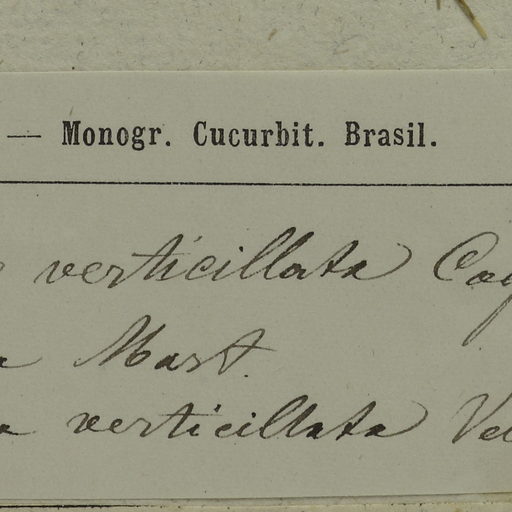 — Monogr. Cucurbit. Brasil.
verticillata Cog
a Mart.
a verticillata Vel